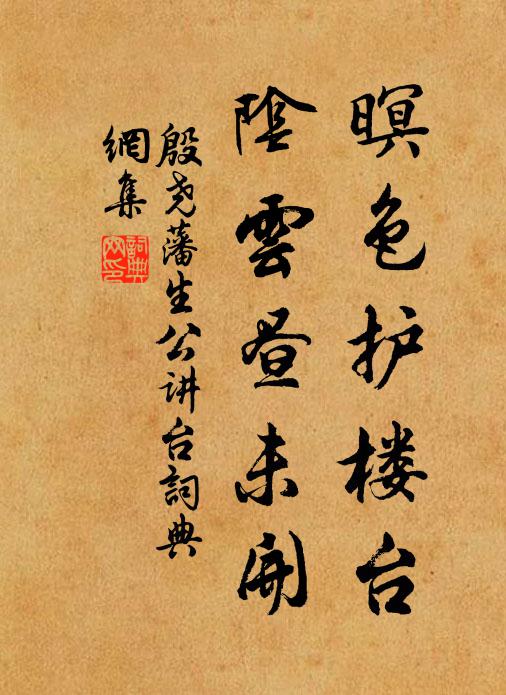 暝色护楼台
陰雲昼未開
殷尧藩生公讲台詞典
網集
詞典
网印